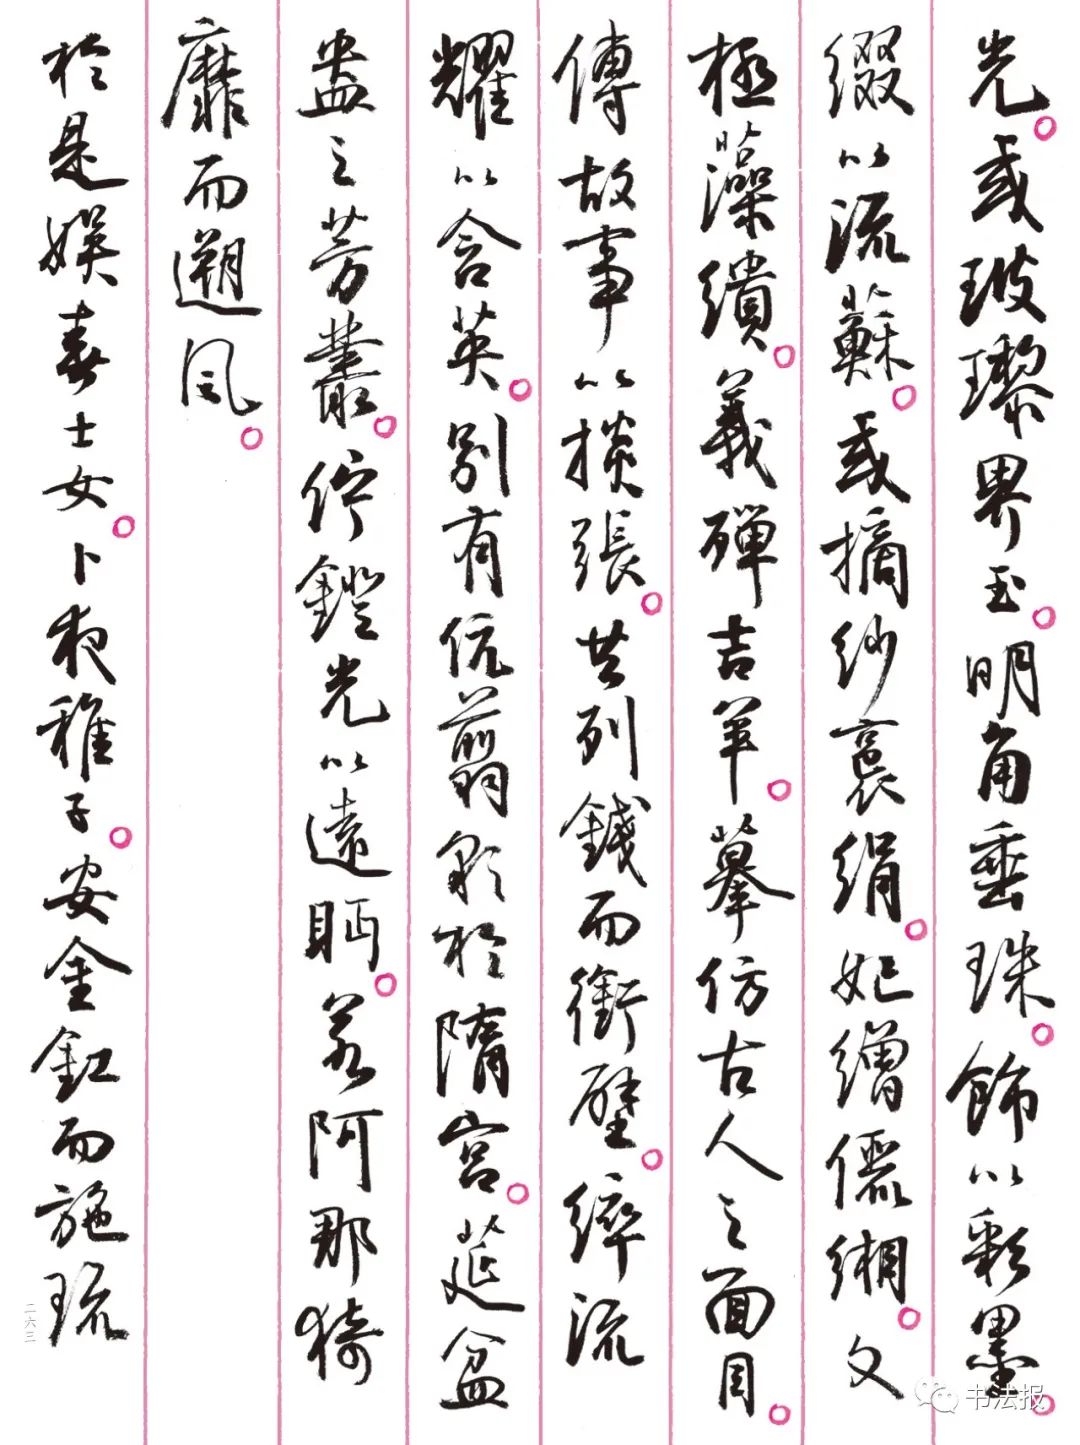 光。或玻瓈界玉。明角垂珠。飾以彩墨。
綴以流蘇。或摛紗裹絹。妃繒儷緗。文
極藻繢。義殫吉羊。摹仿古人之面目。
傳故事以掞張。共列錢而銜璧。繂流
耀以含英。別有伉翦彩於隋宮。莚盆
盎之芳叢。佇鐙光以遠眄。若阿那猗
靡而遡風。
於是娛春士女。卜夜稚子。安金釭而施琉
二六三
书法报